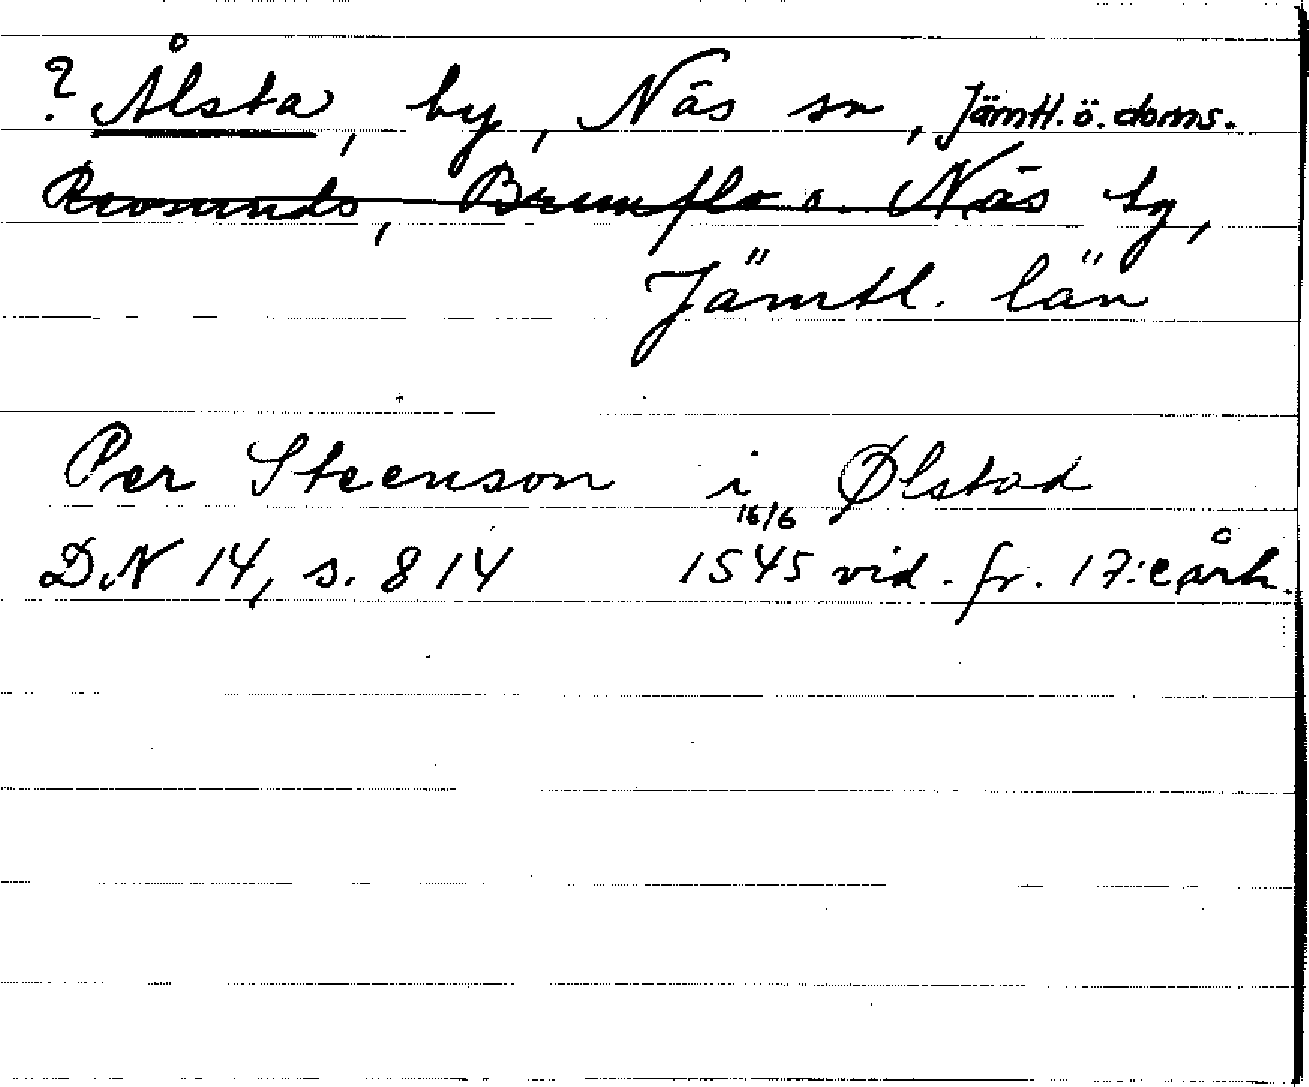 ? Ålsta, by, Näs sn, Jämtl. ö. doms.
Revsunds, Brunflo o. Näs tg,
Jämtl. län
Per Steenson i Ølstad
DN 14, s. 814 16/6 1545 vid. fr. 17:e årh.